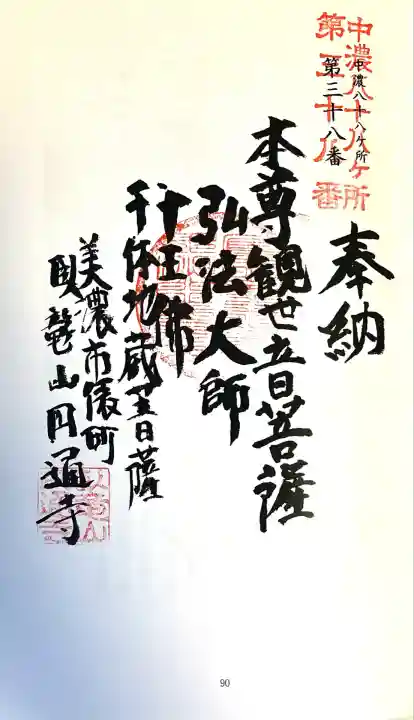 中濃八十八ヶ所
第三十八番
中濃八十八ヶ所
第三十八番
奉納
本尊観世音菩薩
弘法大師
十王佛
千体地蔵菩薩
美濃市俵町
臥龍山円通寺
90